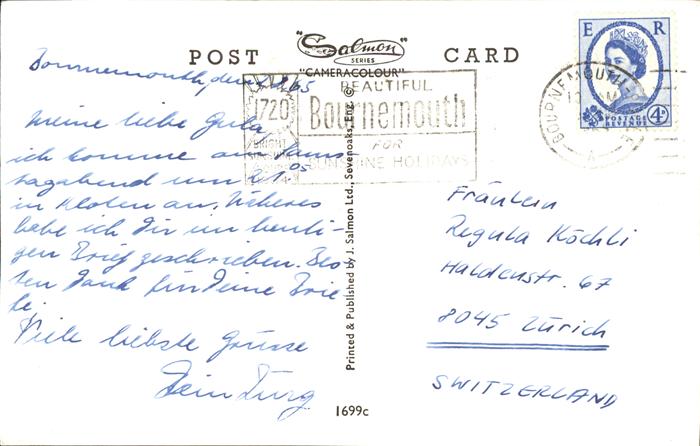 POST "Salmon" CARD
SERIES
"CAMERACOLOUR"
E R
POSTAGE
REVENUE
4D
BOURNEMOUTH
BEAUTIFUL
Bournemouth
FOR
SUNSHINE HOLIDAYS
1720
BRIGHT
Bournemouth, den 65
Meine liebe Gula
ich komme am Sams
tagabend um 21 05
in Kloten an. Näheres
habe ich Dir im heuti-
gen Brief geschrieben. Bes
ten Dank für Deine Brie
fe.
Viele liebste Grüsse
Dein Jürg
Printed & Published by J. Salmon Ltd., Sevenoaks, Eng. ©
Fräulein
Regula Köchli
Haldenstr. 67
8045 Zürich
SWITZERLAND
1699c